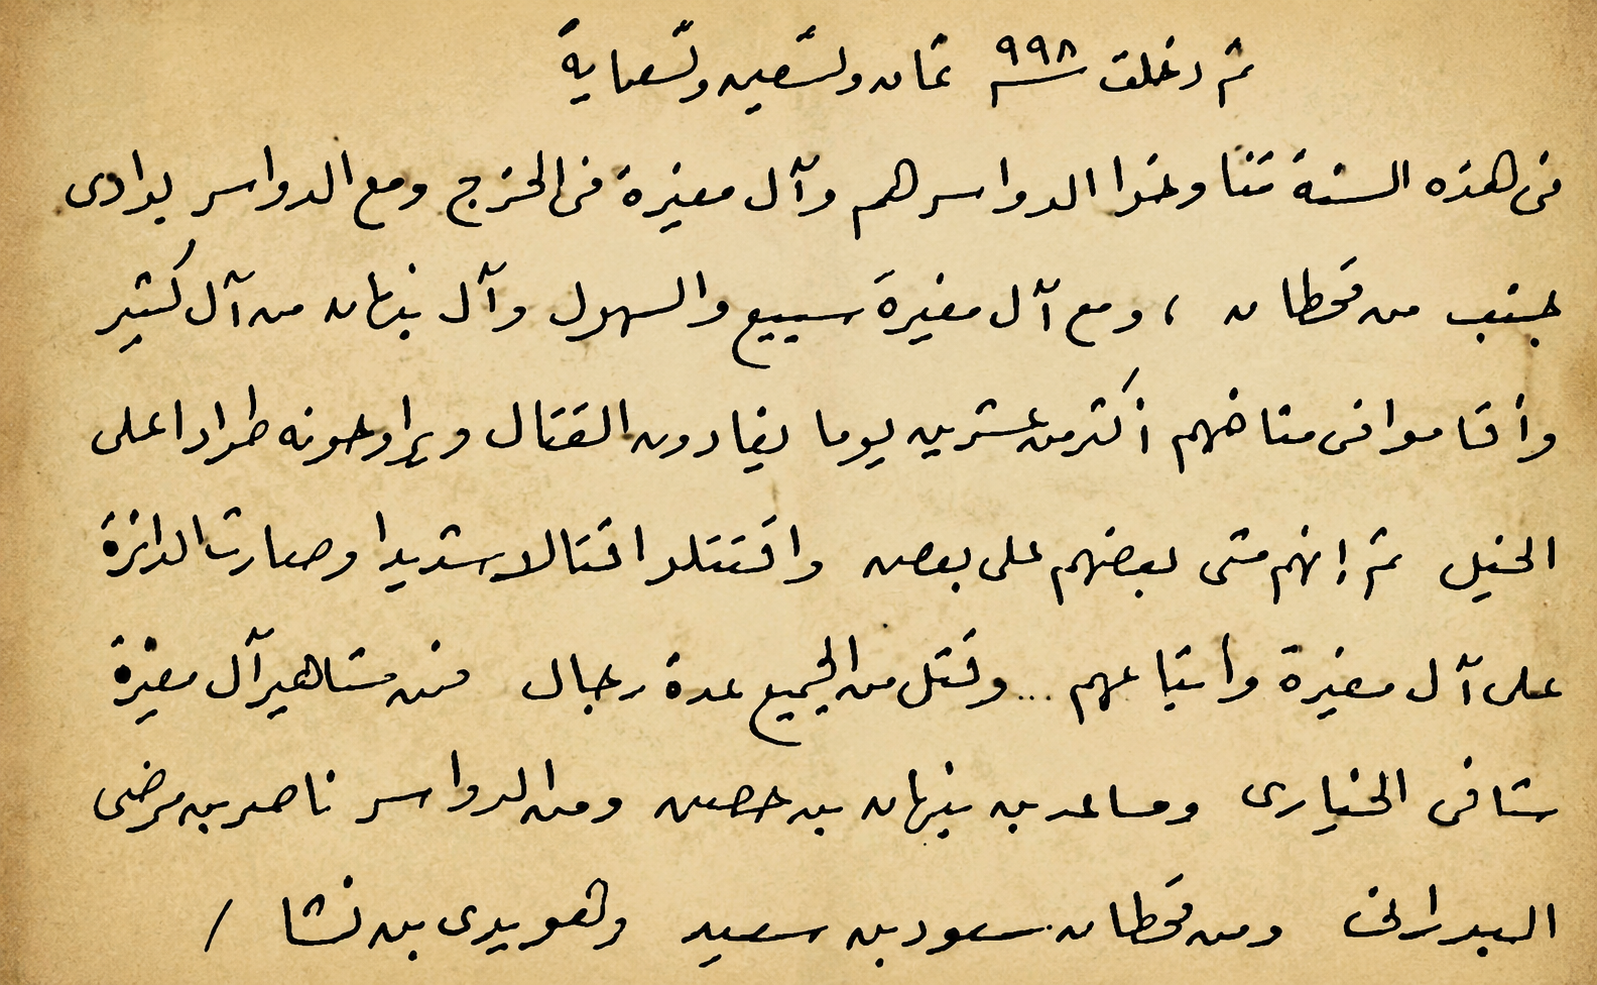 ثم دخلت سنة ٩٩٨ ثمان وتسعين وتسعماية
في هذه السنة تناوخوا الدواسر هم وآل مغيرة في الخرج ومع الدواسر بوادي
جنب من قحطان ، ومع آل مغيرة سبيع والسهول وآل نبهان من آل كثير
وأقاموا في مناخهم أكثر من عشرين يوما يغادون القتال ويراوحونه طرادا على
الخيل ثم إنهم مشى بعضهم على بعض واقتتلوا قتالا شديدا وصارت الدائرة
على آل مغيرة وأتباعهم ... وقتل من الجميع عدة رجال فمن مشاهير آل مغيرة
شافي الخياري ومساعد بن نبهان بن حصن ومن الدواسر ناصر بن مرضي
البدراني ومن قحطان سعود بن سعيد وثعويدي بن نشا /